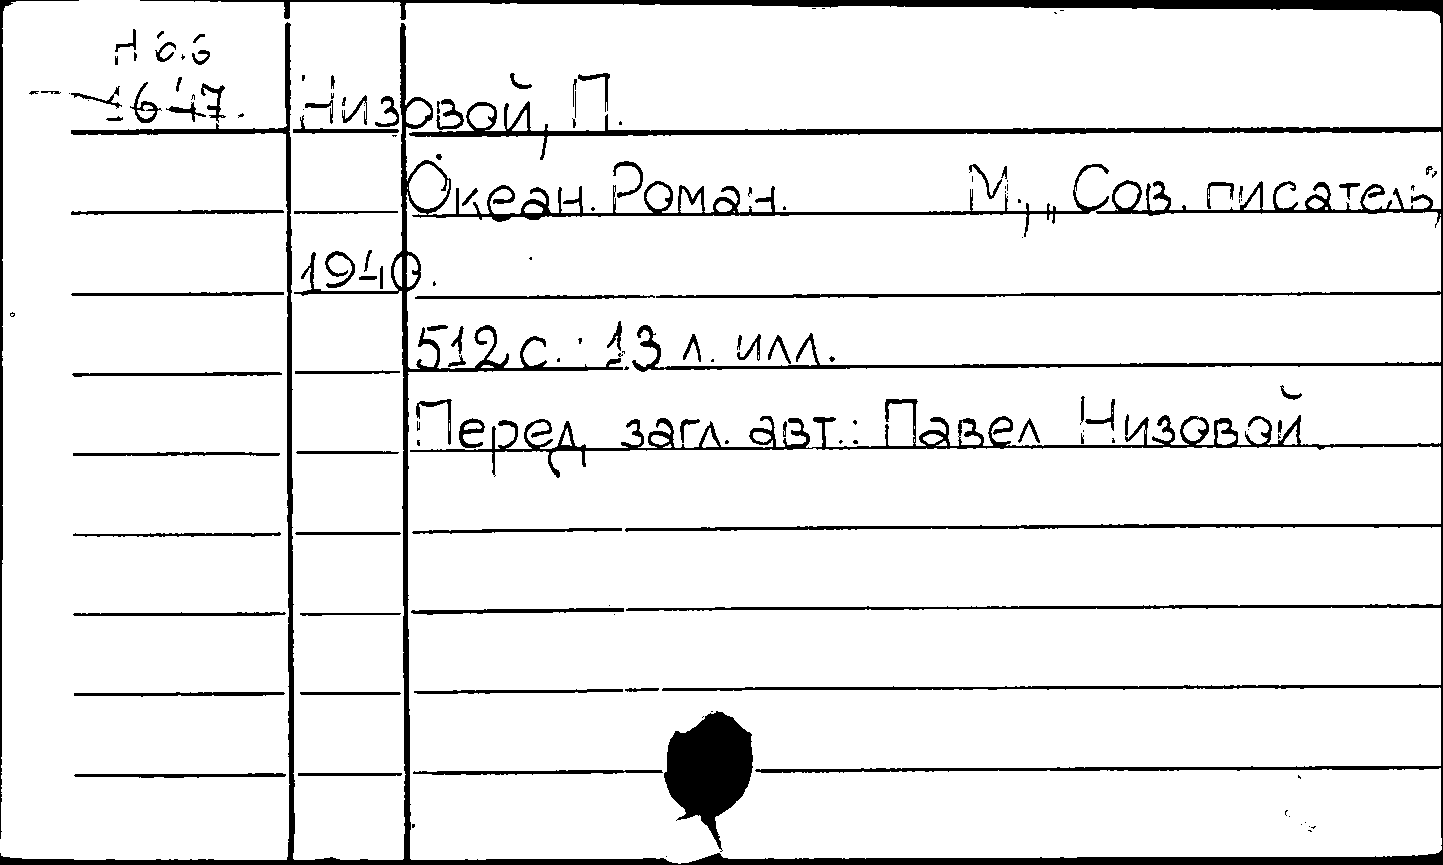 Н 6.6
1647.
Низовой, П.
Океан. Роман. М., „Сов. писатель",
1940.
512 с.: 13 л. илл.
Перед загл. авт.: Павел Низовой.